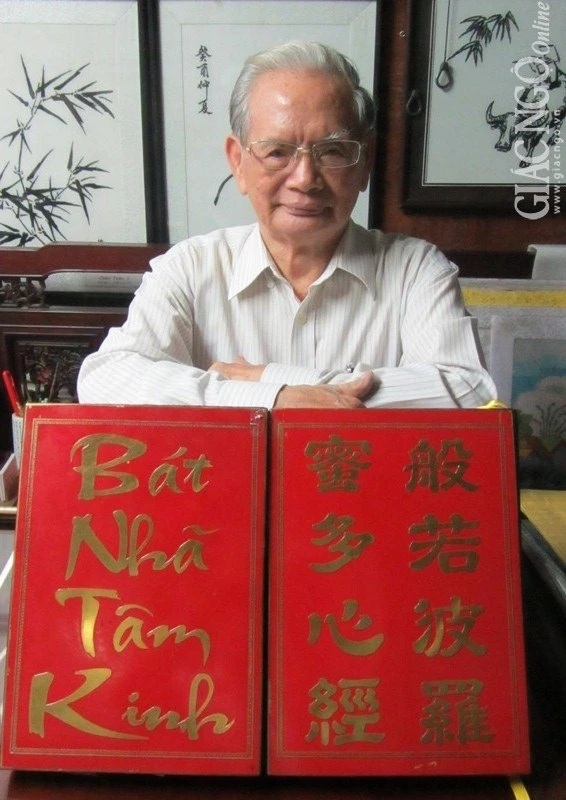 癸酉仲夏
GIÁC NGỘ online
www.giacngo.vn
Bát
Nhã
Tâm
Kinh
般若波羅
蜜多心經